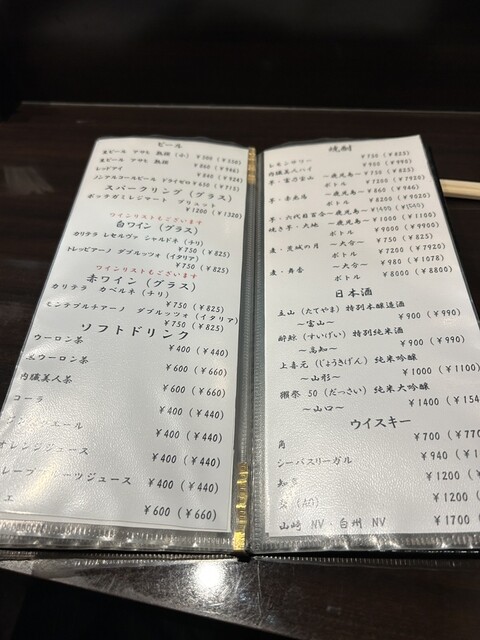 ビール
生ビール アサヒ 熟撰 (小) ￥500 (￥550)
生ビール アサヒ 熟撰 ￥860 (￥946)
レッドアイ ￥840 (￥924)
ノンアルコールビール ドライゼロ ￥650 (￥715)
スパークリング (グラス)
ボッテガミレジマート ブリュット
￥1200 (￥1320)
ワインリストもございます
白ワイン (グラス)
カリテラ レセルヴァ シャルドネ (チリ)
￥750 (￥825)
トレッビアーノ ダブルッツォ (イタリア)
￥750 (￥825)
ワインリストもございます
赤ワイン (グラス)
カリテラ カベルネ (チリ)
￥750 (￥825)
モンテプルチアーノ ダブルッツォ (イタリア)
￥750 (￥825)
ソフトドリンク
ウーロン茶 ￥400 (￥440)
黒ウーロン茶 ￥600 (￥660)
内臓美人茶 ￥600 (￥660)
コーラ ￥400 (￥440)
ジンジャエール ￥400 (￥440)
オレンジジュース ￥400 (￥440)
グレープフルーツジュース ￥400 (￥440)
￥600 (￥660)
焼酎
レモンサワー ￥750 (￥825)
内臓美人ハイ ￥900 (￥990)
芋・富乃宝山 ～鹿児島～ ￥750 (￥825)
ボトル ￥7200 (￥7920)
芋・赤兎馬 ～鹿児島～ ￥860 (￥946)
ボトル ￥8200 (￥9020)
芋・六代目百合 ～鹿児島～
焼き芋・大地 ～鹿児島～ ￥1000 (￥1100)
ボトル ￥9000 (￥9900)
麦・茨城の月 ～大分～ ￥750 (￥825)
ボトル ￥7200 (￥7920)
麦・寿香 ～大分～ ￥980 (￥1078)
ボトル ￥8000 (￥8800)
日本酒
立山 (たてやま) 特別本醸造酒
～富山～ ￥900 (￥990)
酔鯨 (すいげい) 特別純米酒
～高知～ ￥900 (￥990)
上喜元 (じょうきげん) 純米吟醸
～山形～ ￥1000 (￥1100)
獺祭 50 (だっさい) 純米大吟醸
～山口～ ￥1400 (￥154
ウイスキー
角 ￥700 (￥770
シーバスリーガル ￥940 (￥1
知多 ￥1200 (
￥1200 (
山崎 NV・白州 NV ￥1700 (